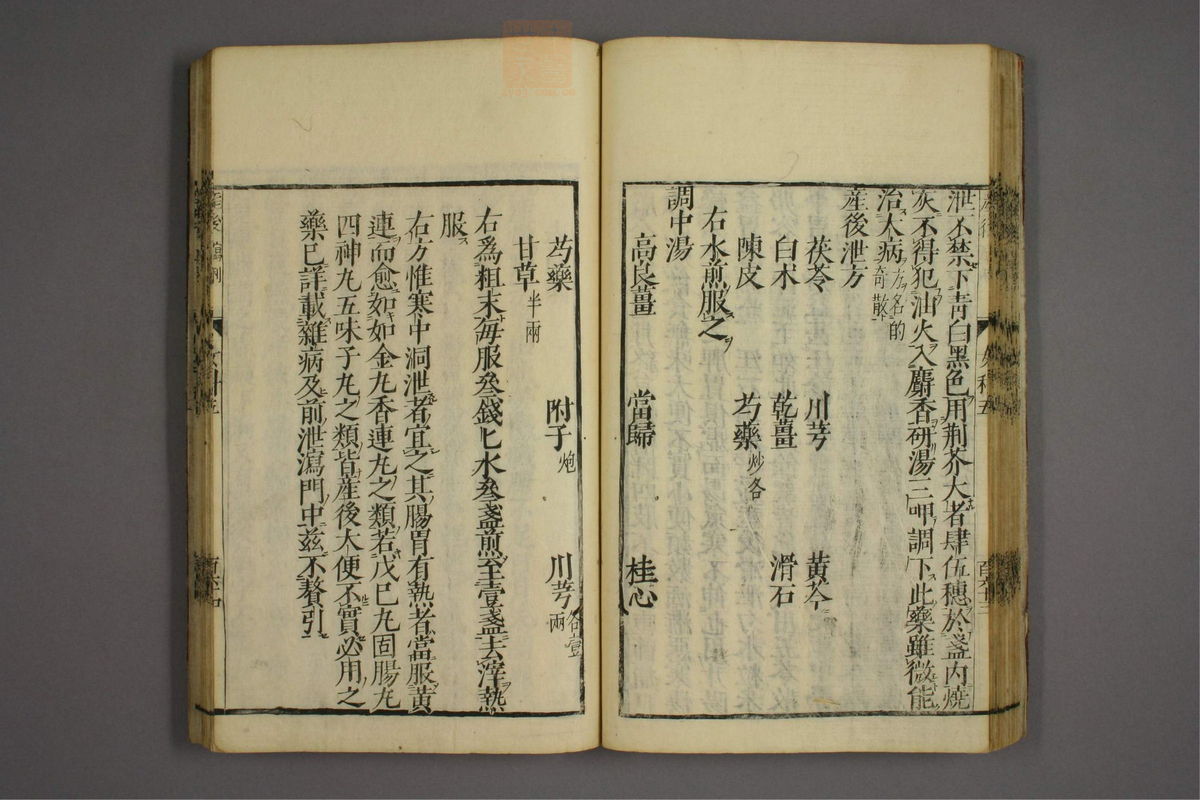 泄不禁下青白黑色用荆芥大者肆伍穗於盞内燒
灰不得犯油火入麝香研湯三呷調下此藥雖微能
治大病方名的奇散
産後泄方
茯苓 川芎 黄芩
白术 乾薑 滑石
陳皮 芍藥炒各
右水煎服之
調中湯
高良薑 當歸 桂心
芍藥 附子炮 川芎各壹兩
甘草半兩
右爲粗末毎服叁錢匕水叁盞煎至壹盞去滓熱
服
右方惟寒中洞泄者宜之其腸胃有熱者當服黄
連而愈如如金丸香連丸之類若戊已丸固腸丸
四神丸五味子丸之類皆産後大便不實必用之
藥已詳載雜病及前泄瀉門中茲不贅引